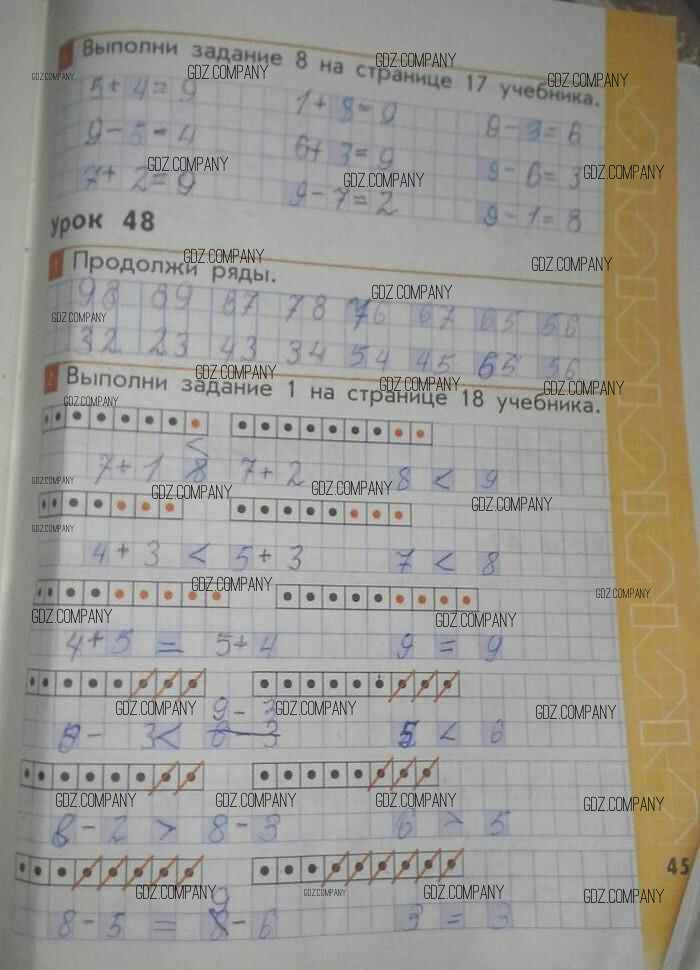 1 Выполни задание 8 на странице 17 учебника.
5 + 4 = 9 1 + 8 = 9 9 - 3 = 6
9 - 5 = 4 6 + 3 = 9 9 - 6 = 3
7 + 2 = 9 9 - 7 = 2 9 - 1 = 8
урок 48
1 Продолжи ряды.
98 89 87 78 76 67 65 56
32 23 43 34 54 45 65 56
2 Выполни задание 1 на странице 18 учебника.
7 + 1 < 7 + 2 8 < 9
4 + 3 < 5 + 3 7 < 8
4 + 5 = 5 + 4 9 = 9
8 - 3 < 9 - 3 5 < 6
8 - 2 > 8 - 3 6 > 5
8 - 5 = 9 - 6 3 = 3
45
GDZ.COMPANY